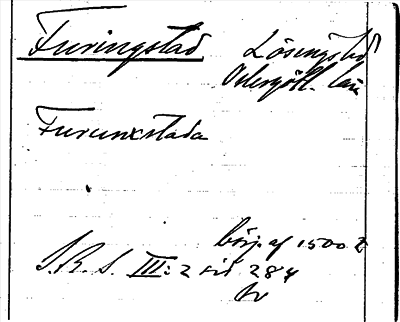 Furingstad
Lösings hd
Östergötl. län
Furunxstada
börj. af 1500 t
S.R.S. III: 2 sid 284